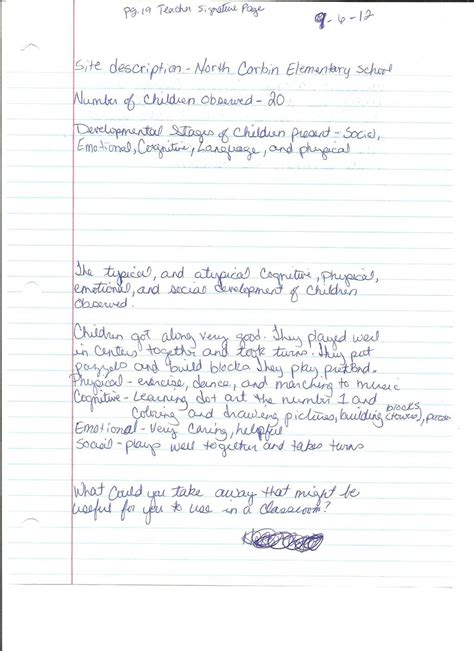 Pg. 19 Teacher Signature Page
9-6-12
Site description - North Corbin Elementary School
Number of Children Observed - 20
Developmental Stages of Children Present - Social,
Emotional, Cognitive, Language, and physical
The typical, and atypical Cognitive, physical,
emotional, and social development of Children
Observed.
Children got along very good. They played well
in Centers together and took turns. They put
puzzels and build blocks. They play pretend.
Physical - exercise, dance, and marching to music
Cognitive - Learning dot art the number 1 and
Coloring and drawing pictures, building blocks
Emotional - Very Caring, helpful
Social - plays well together and takes turns
What Could you take away that might be
useful for you to use in a classroom?